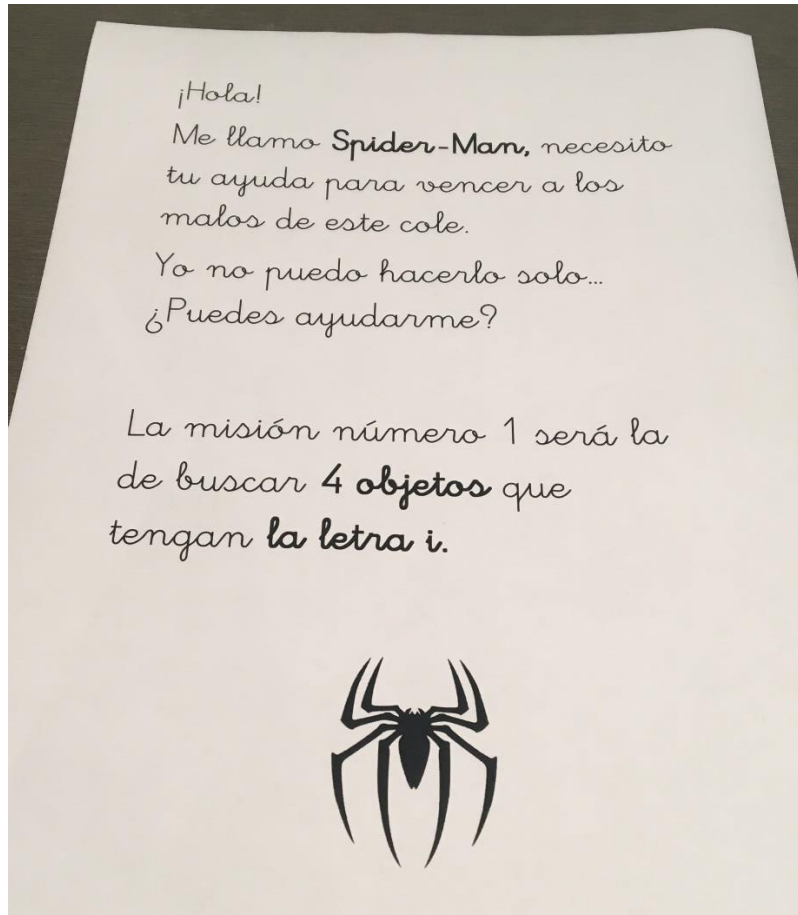 ¡Hola!
Me llamo Spider-Man, necesito
tu ayuda para vencer a los
malos de este cole.
Yo no puedo hacerlo solo...
¿Puedes ayudarme?
La misión número 1 será la
de buscar 4 objetos que
tengan la letra i.